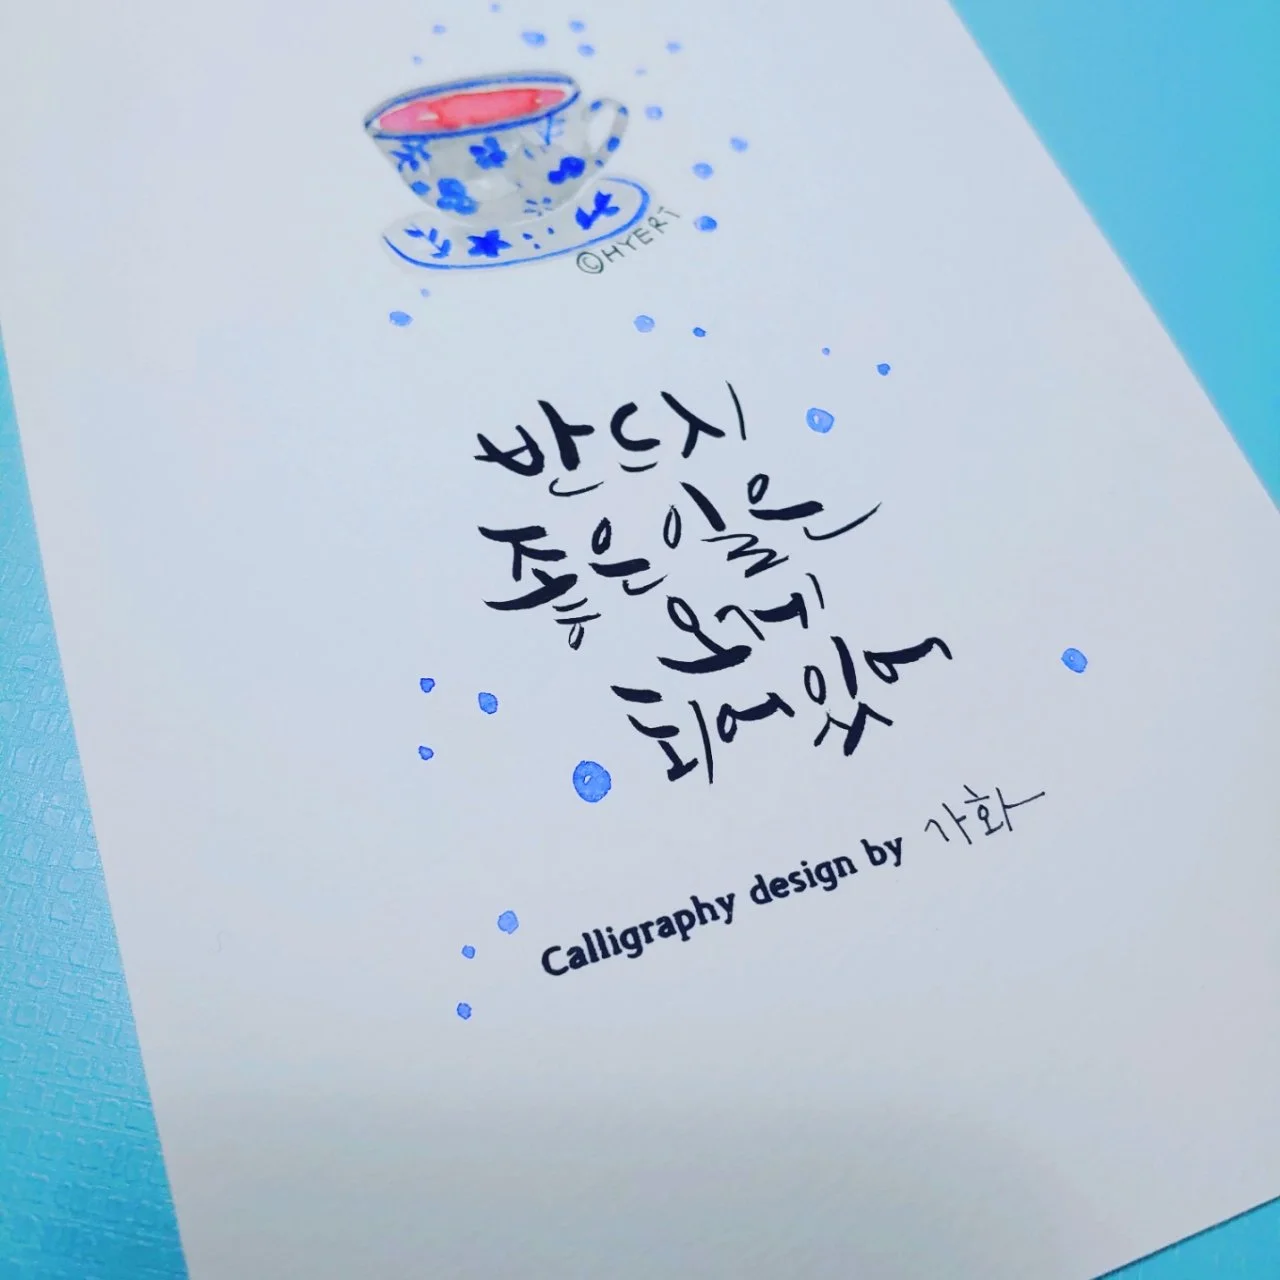 ©HYERI
반드시
좋은 일은
오게
되어있어
Calligraphy design by 가화